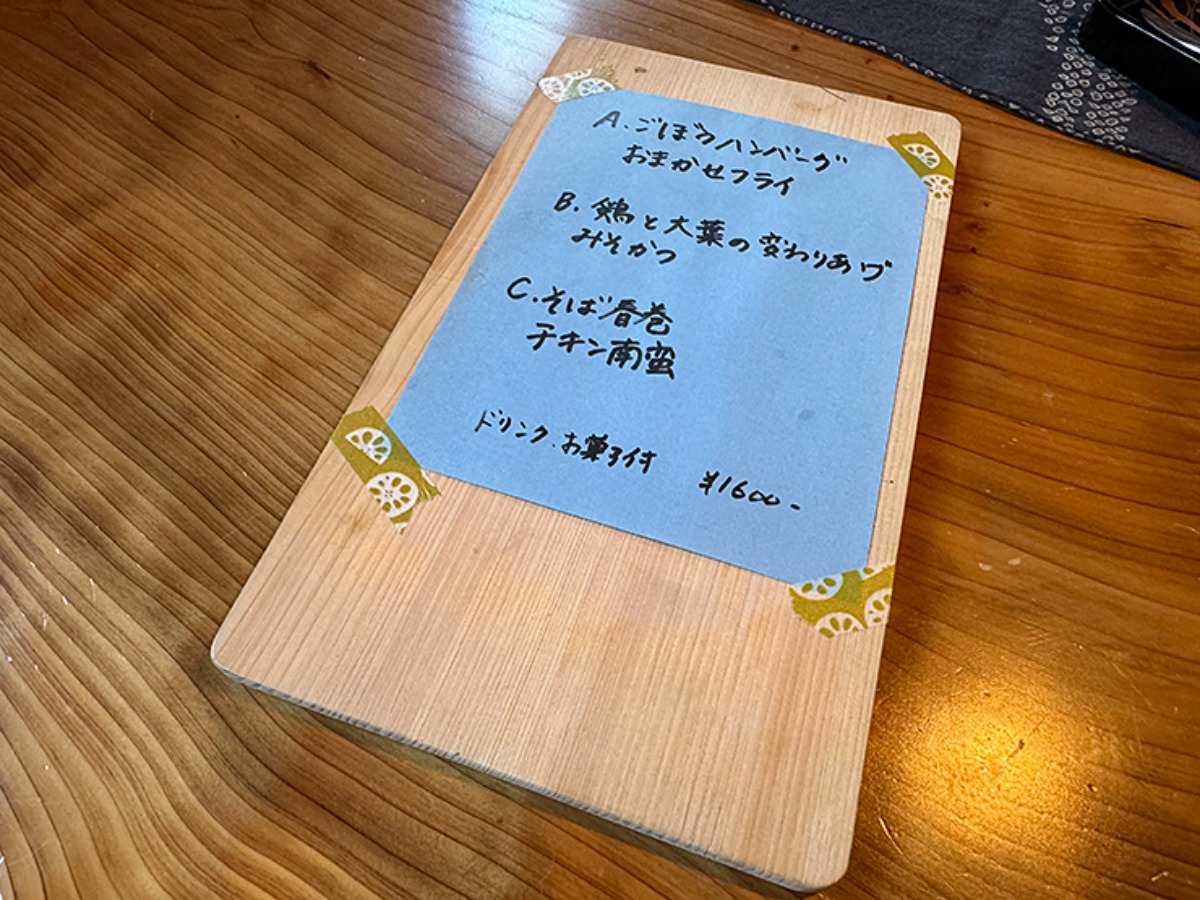 A.ごぼうハンバーグ
おまかせフライ
B.鶏と大葉の変わりあげ
みそかつ
C.そば春巻
チキン南蛮
ドリンク.お菓子付 ¥1600-